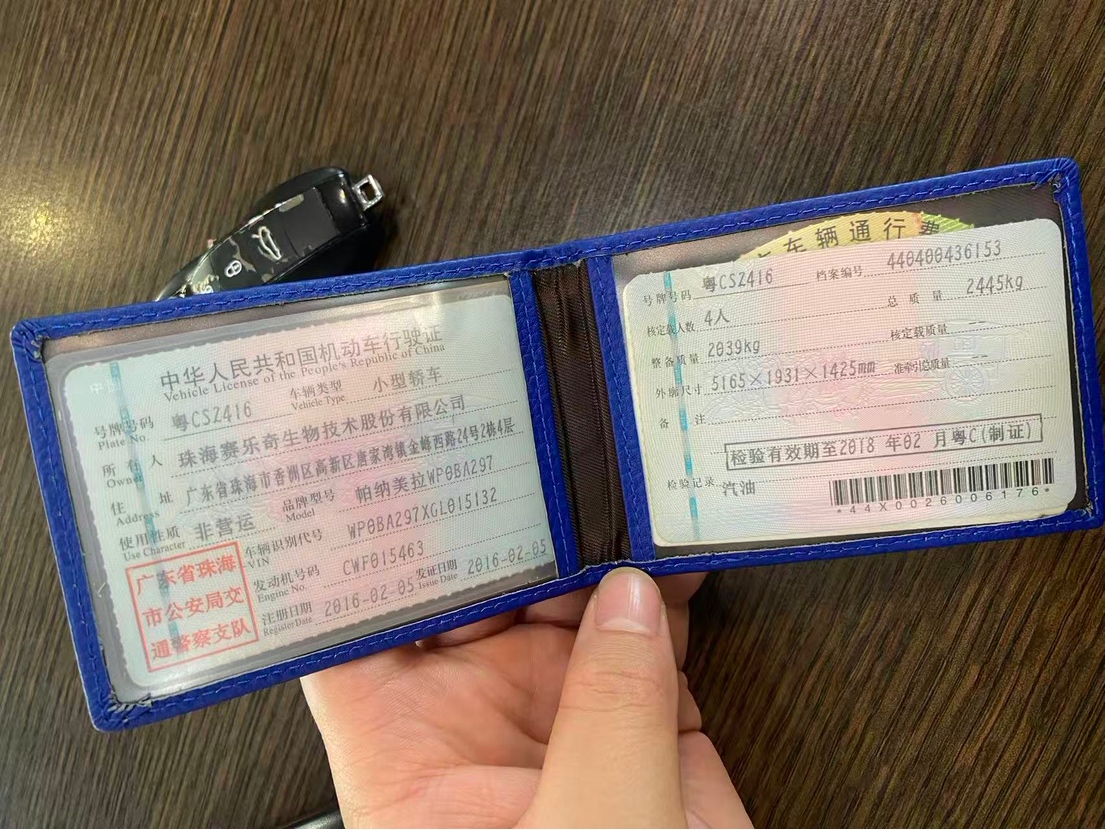 中华人民共和国机动车行驶证
Vehicle License of the People's Republic of China
号牌号码 粤CS2416 车辆类型 小型轿车
Plate No. Vehicle Type
所有人 珠海赛乐奇生物技术股份有限公司
Owner
住址 广东省珠海市香洲区高新区唐家湾镇金峰西路24号2栋4层
Address
使用性质 非营运 品牌型号 帕纳美拉WP0BA297
Use Character Model
广东省珠海
市公安局交
通警察支队
车辆识别代号 WP0BA297XGL015132
VIN
发动机号码 CWF015463
Engine No.
注册日期 2016-02-05 发证日期 2016-02-05
Register Date Issue Date
车辆通行费
号牌号码 粤CS2416 档案编号 440400436153
核定载人数 4人 总质量 2445kg
整备质量 2039kg 核定载质量 --
外廓尺寸 5165×1931×1425mm 准牵引总质量 --
备注
检验有效期至2018年02月粤C(制证)
检验记录 汽油
*44X0026006176*